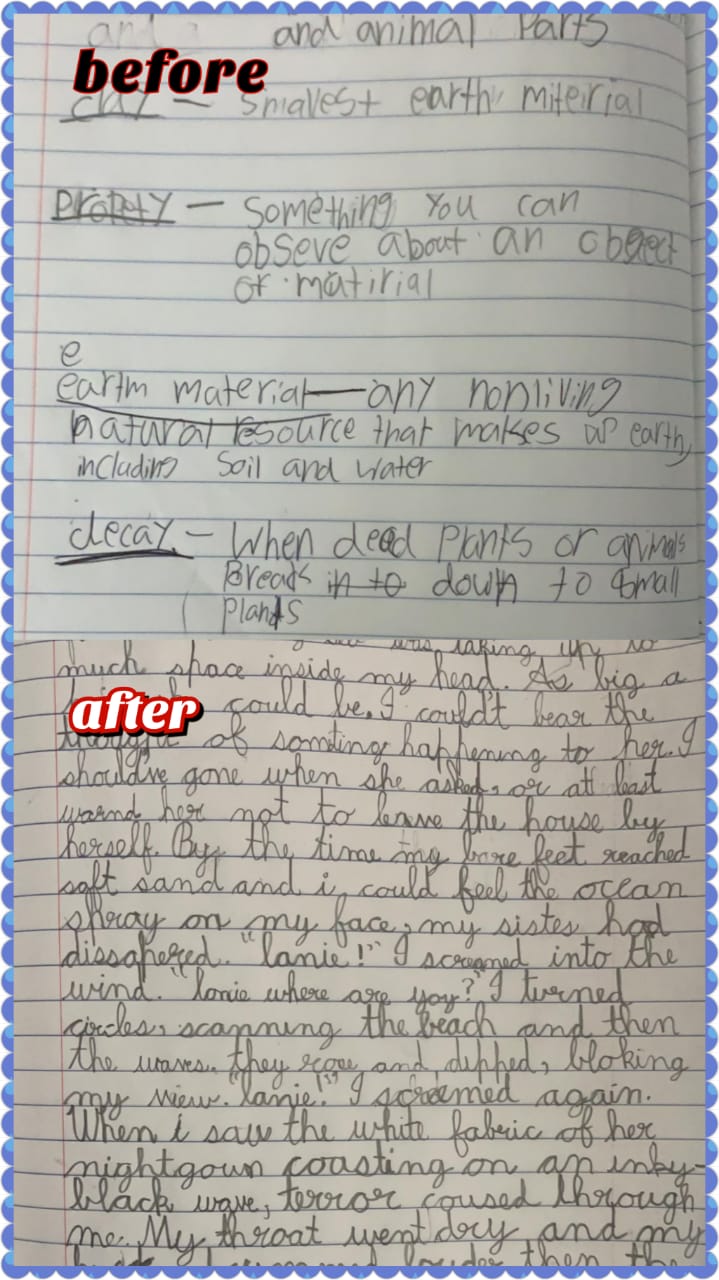 and animal Parts
before
clay - smalest earth miteirial
Propety - Something You can
obseve about an object
or matirial
e
earth material - any nonliving
natural resource that makes up earth,
including Soil and water
decay - When dead Plants or animals
Breads in to down to small
Plants
was taking up so
much space inside my head. As big a
after
could be. I could't bear the
thought of somting happening to her. I
should've gone when she asked, or at least
warnd her not to leave the house by
herself. By the time my bare feet reached
soft sand and i could feel the ocean
shray on my face, my sister had
dissapered. "lanie!" I screamed into the
wind. "lanie where are yoy?" I turned
circles, scanning the beach and then
the waves. they rose and dipped, bloking
my view. "lanie!" I screamed again.
When i saw the white fabric of her
nightgown coasting on an inky-
black wave, terror coused through
me. My throat went dry and my
louder then the